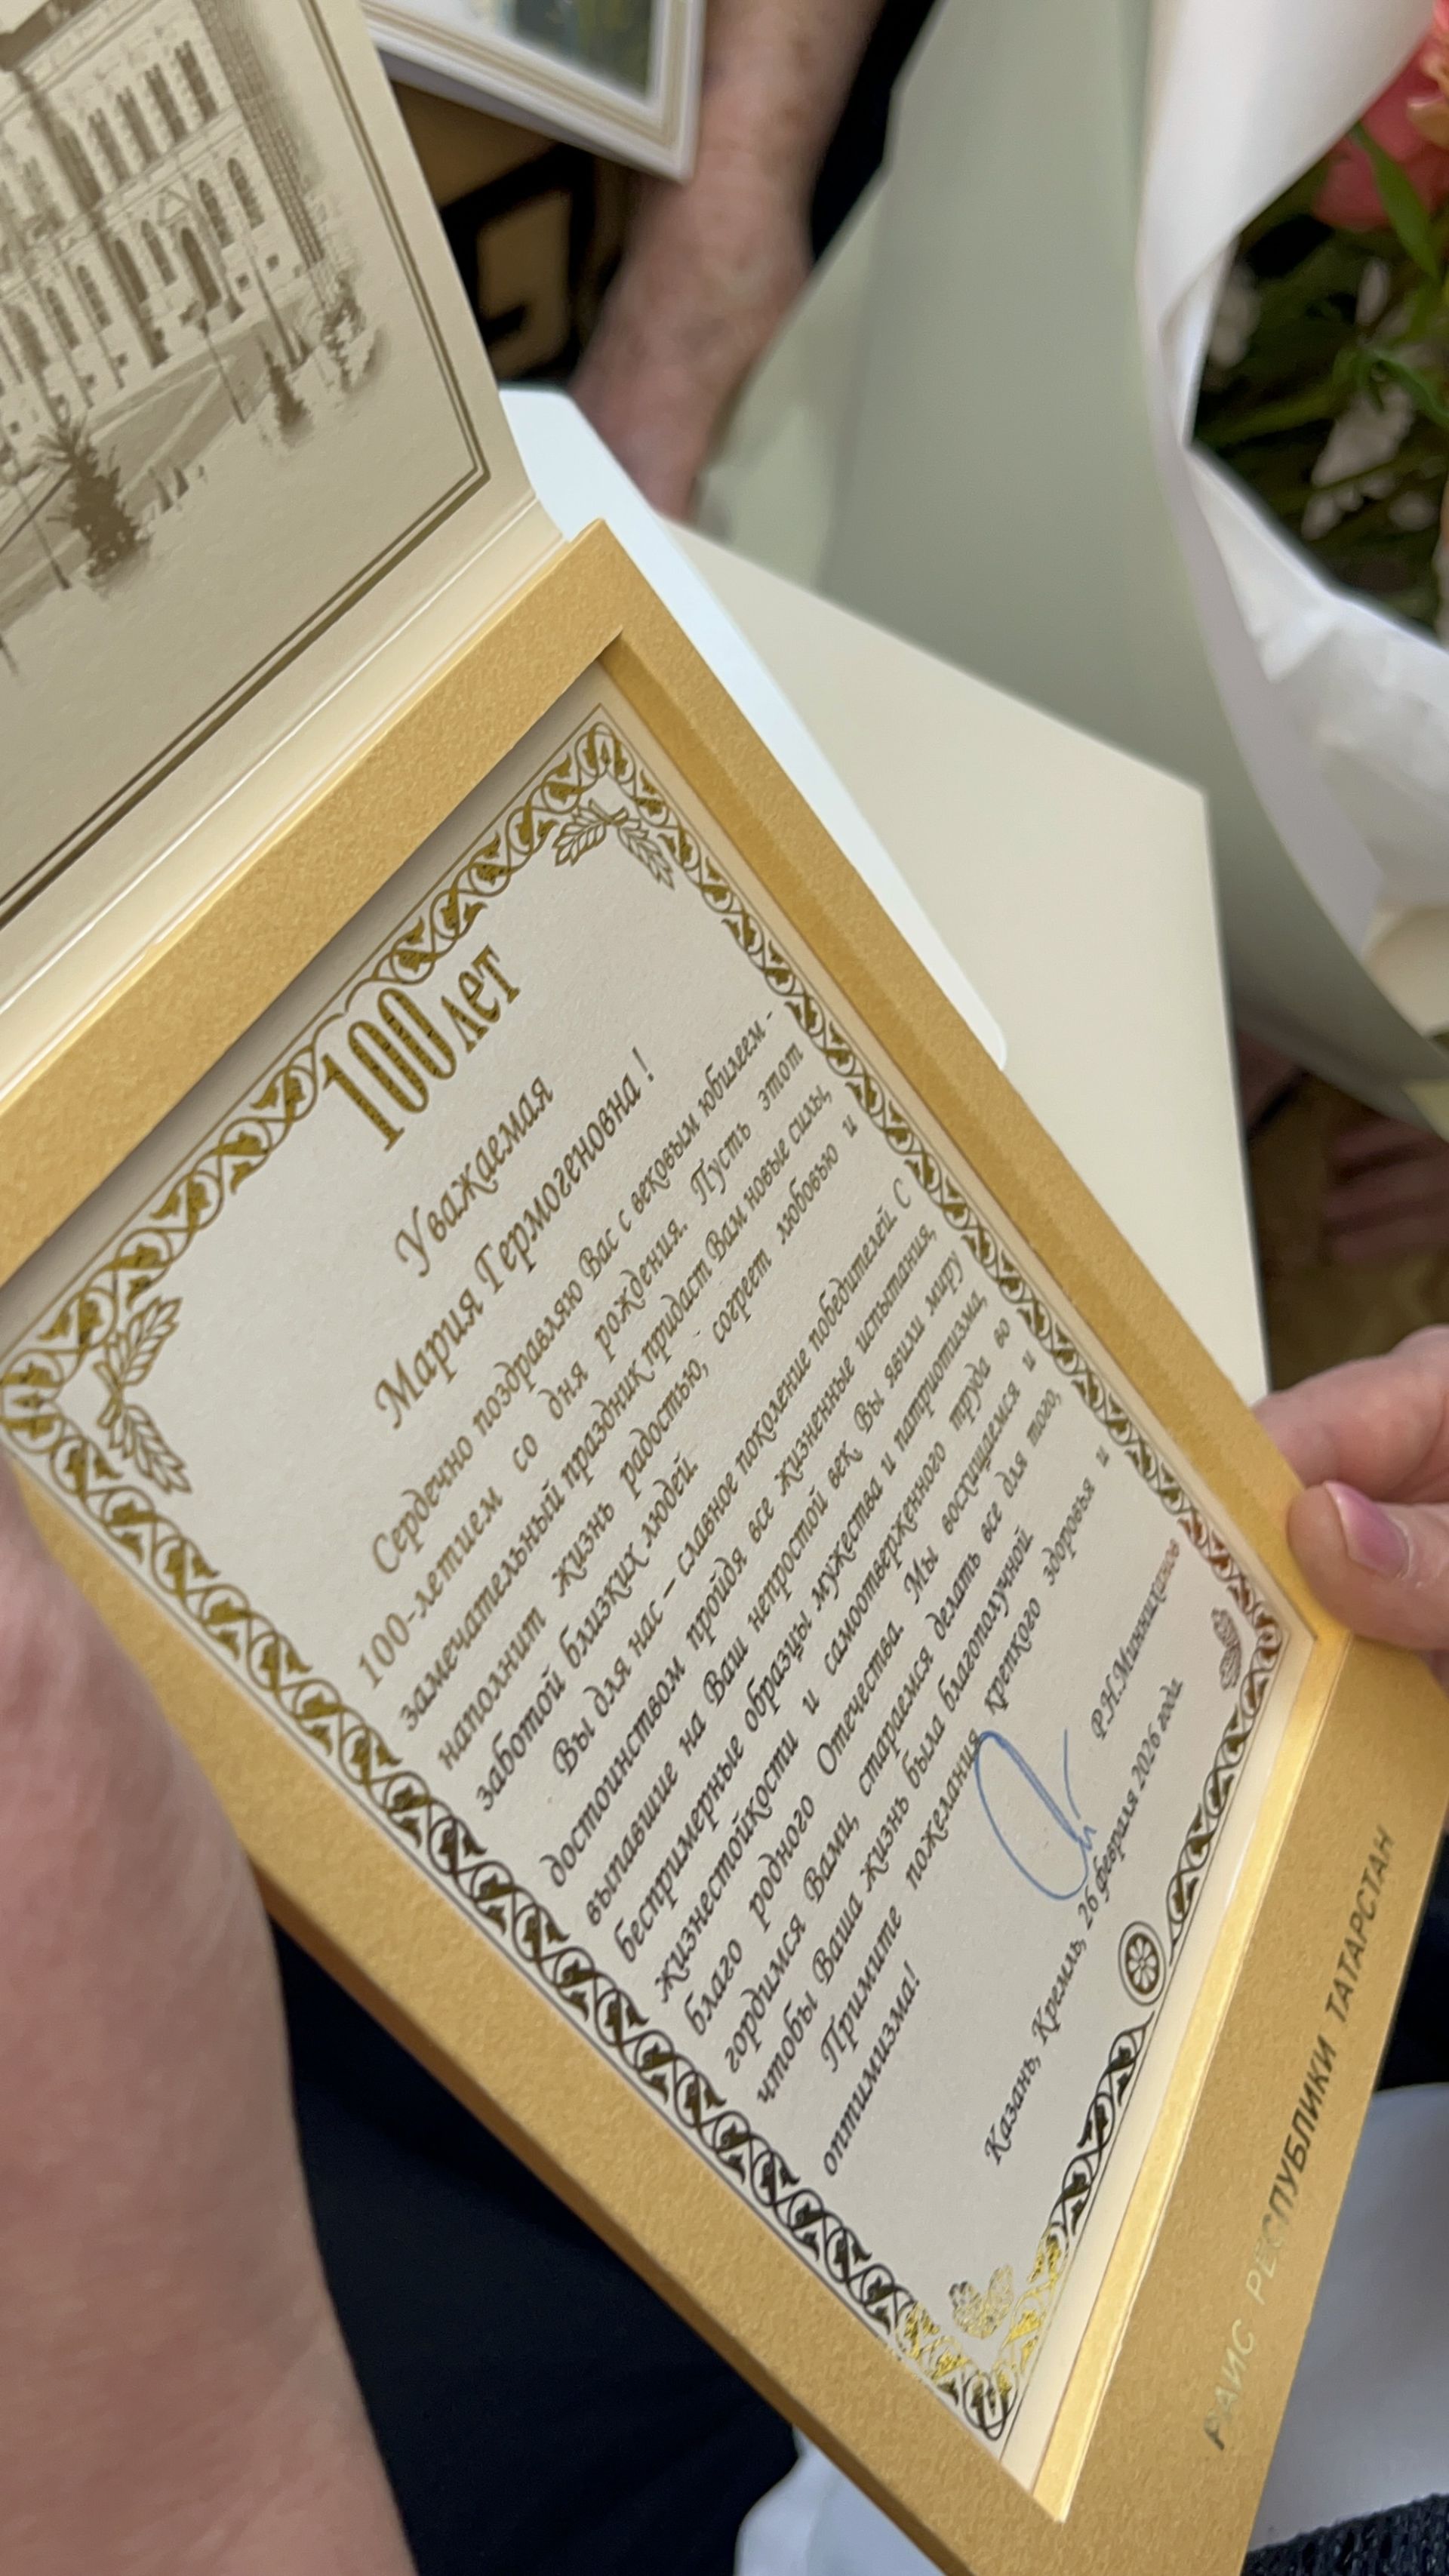 100 лет
Уважаемая
Мария Гермогеновна !
Сердечно поздравляю Вас с вековым юбилеем -
100-летием со дня рождения. Пусть этот
замечательный праздник придаст Вам новые силы,
наполнит жизнь радостью, согреет любовью и
заботой близких людей.
Вы для нас – славное поколение победителей. С
достоинством пройдя все жизненные испытания,
выпавшие на Ваш непростой век, Вы явили миру
беспримерные образцы мужества и патриотизма,
жизнестойкости и самоотверженного труда во
благо родного Отечества. Мы восхищаемся и
гордимся Вами, стараемся делать все для того,
чтобы Ваша жизнь была благополучной.
Примите пожелания крепкого здоровья и
оптимизма!
Р.Н.Минниханов
Казань, Кремль, 26 февраля 2026 года
РАИС РЕСПУБЛИКИ ТАТАРСТАН